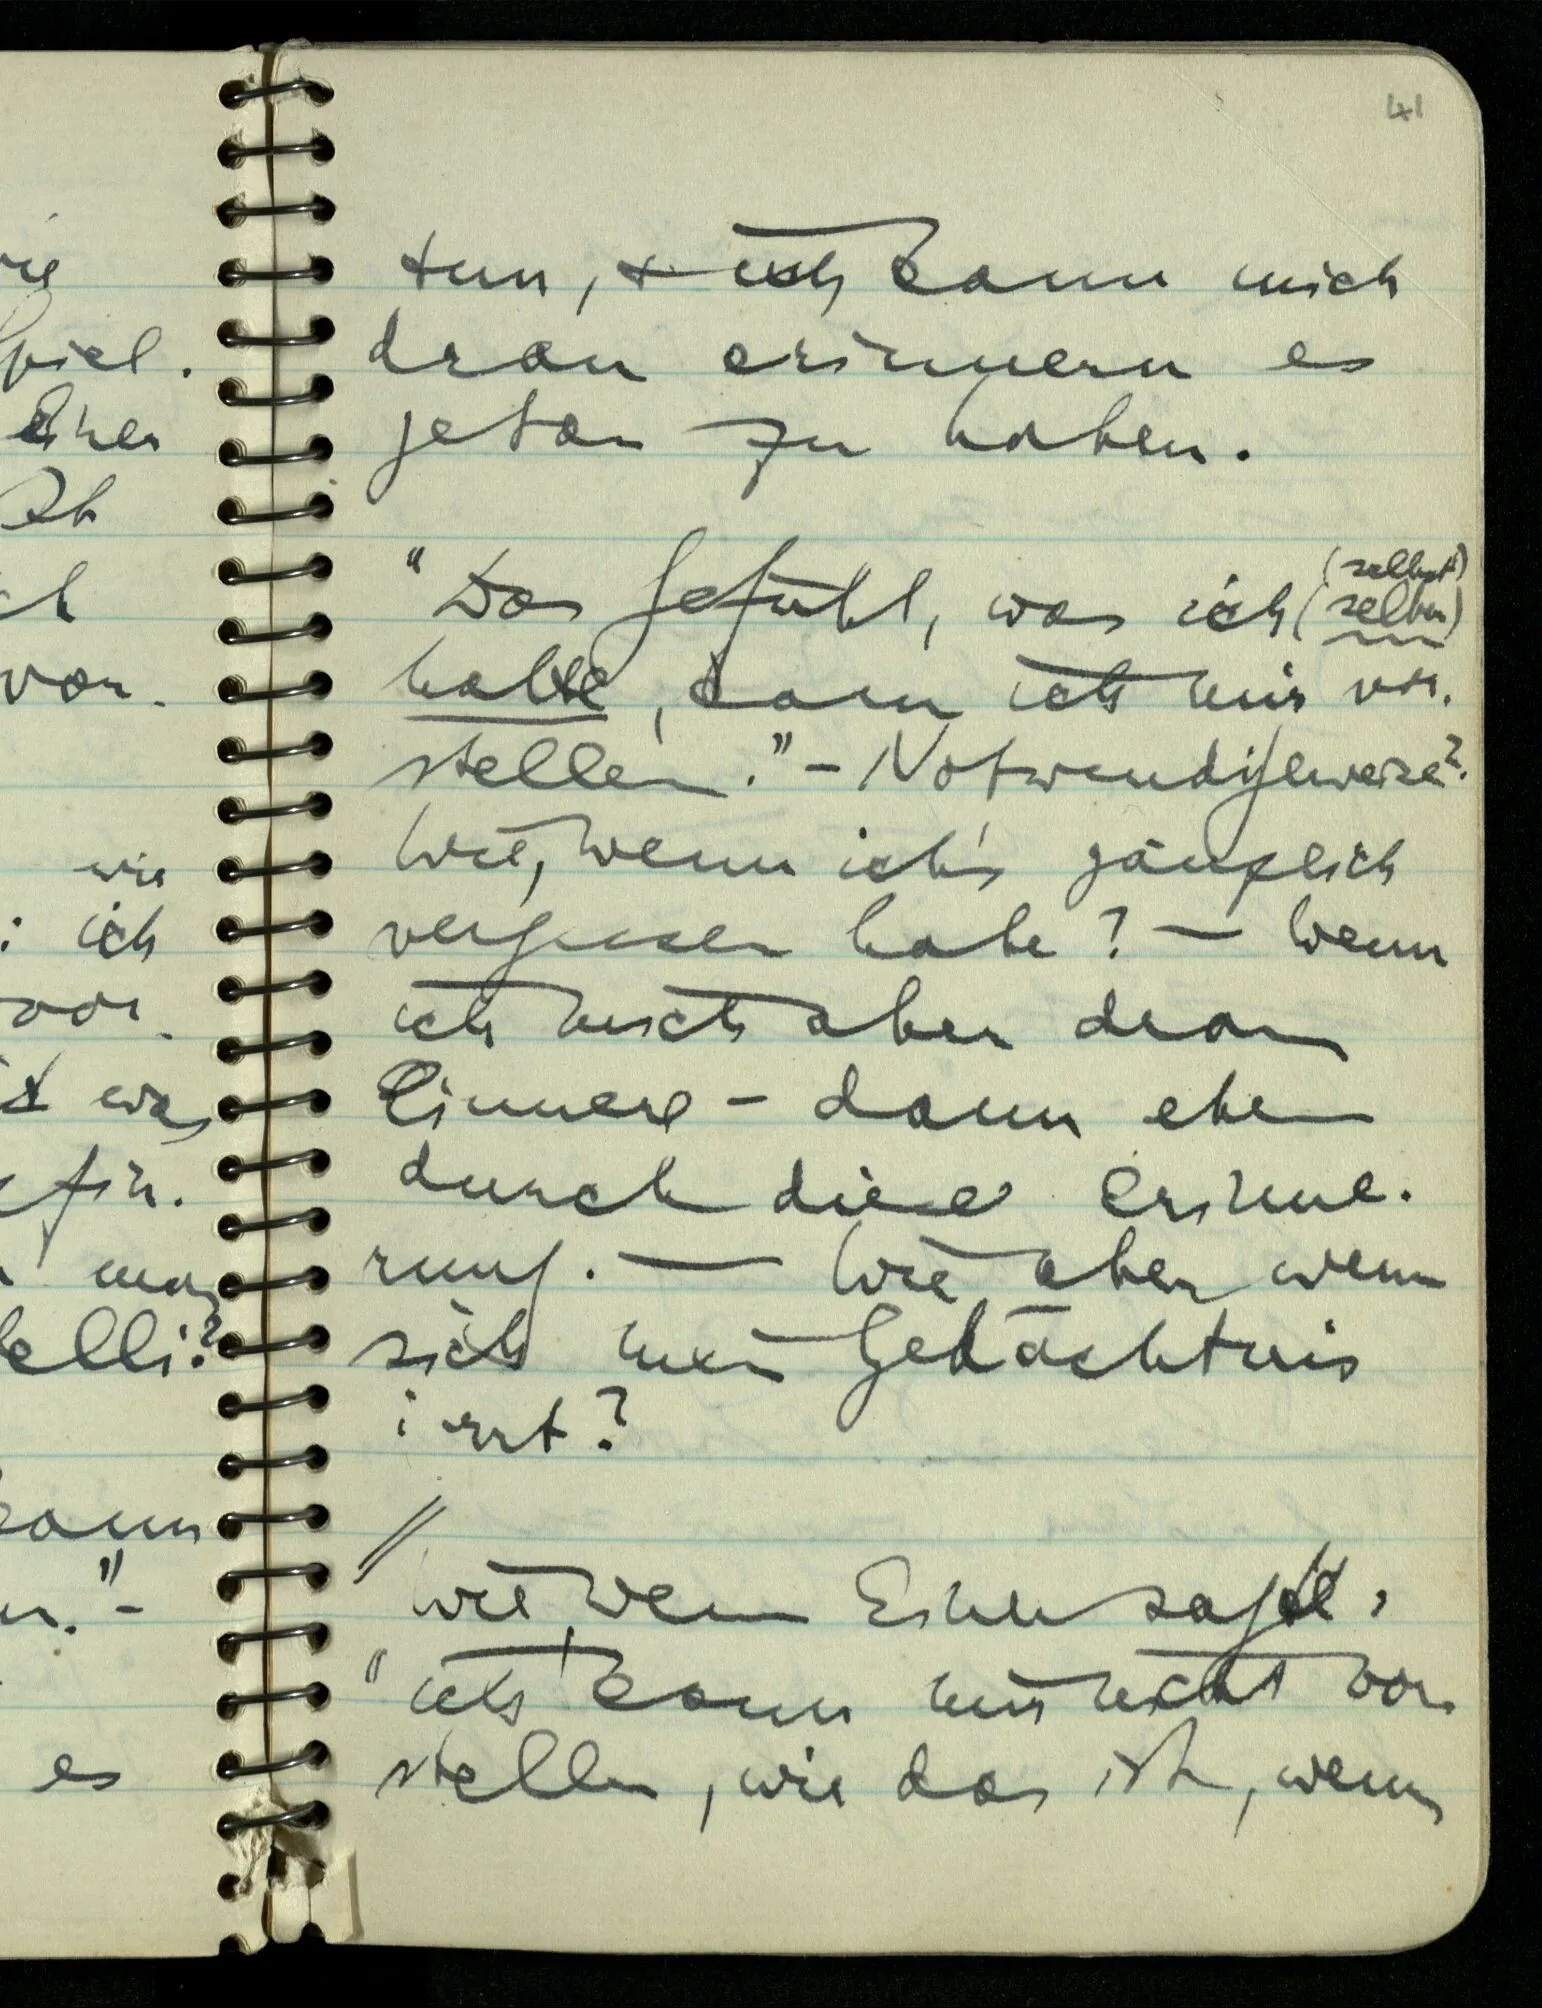 41
tun, + ich kann mich
dran erinnern es
getan zu haben.
"Das Gefühl, was ich (selbst)
(selber)
hatte, kann ich mir vor-
stellen." – Notwendigerweise?
Wie, wenn ich's gänzlich
vergessen habe? – Wenn
ich mich aber dran
erinnere – dann eben
durch diese Erinne-
rung. — Wie aber wenn
sich mein Gedächtnis
irrt?
//
Wie, wenn Einer sagte:
"ich kann mir nicht vor-
stellen, wie das ist, wenn
wie
piel.
Einer
Ob
ch
vor.
wie
: ich
vor.
was
für.
man
elli?
kann
." –
es